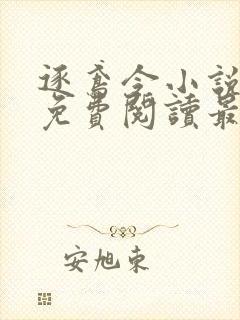 逐鸢令小說
免費閱讀最
安旭東